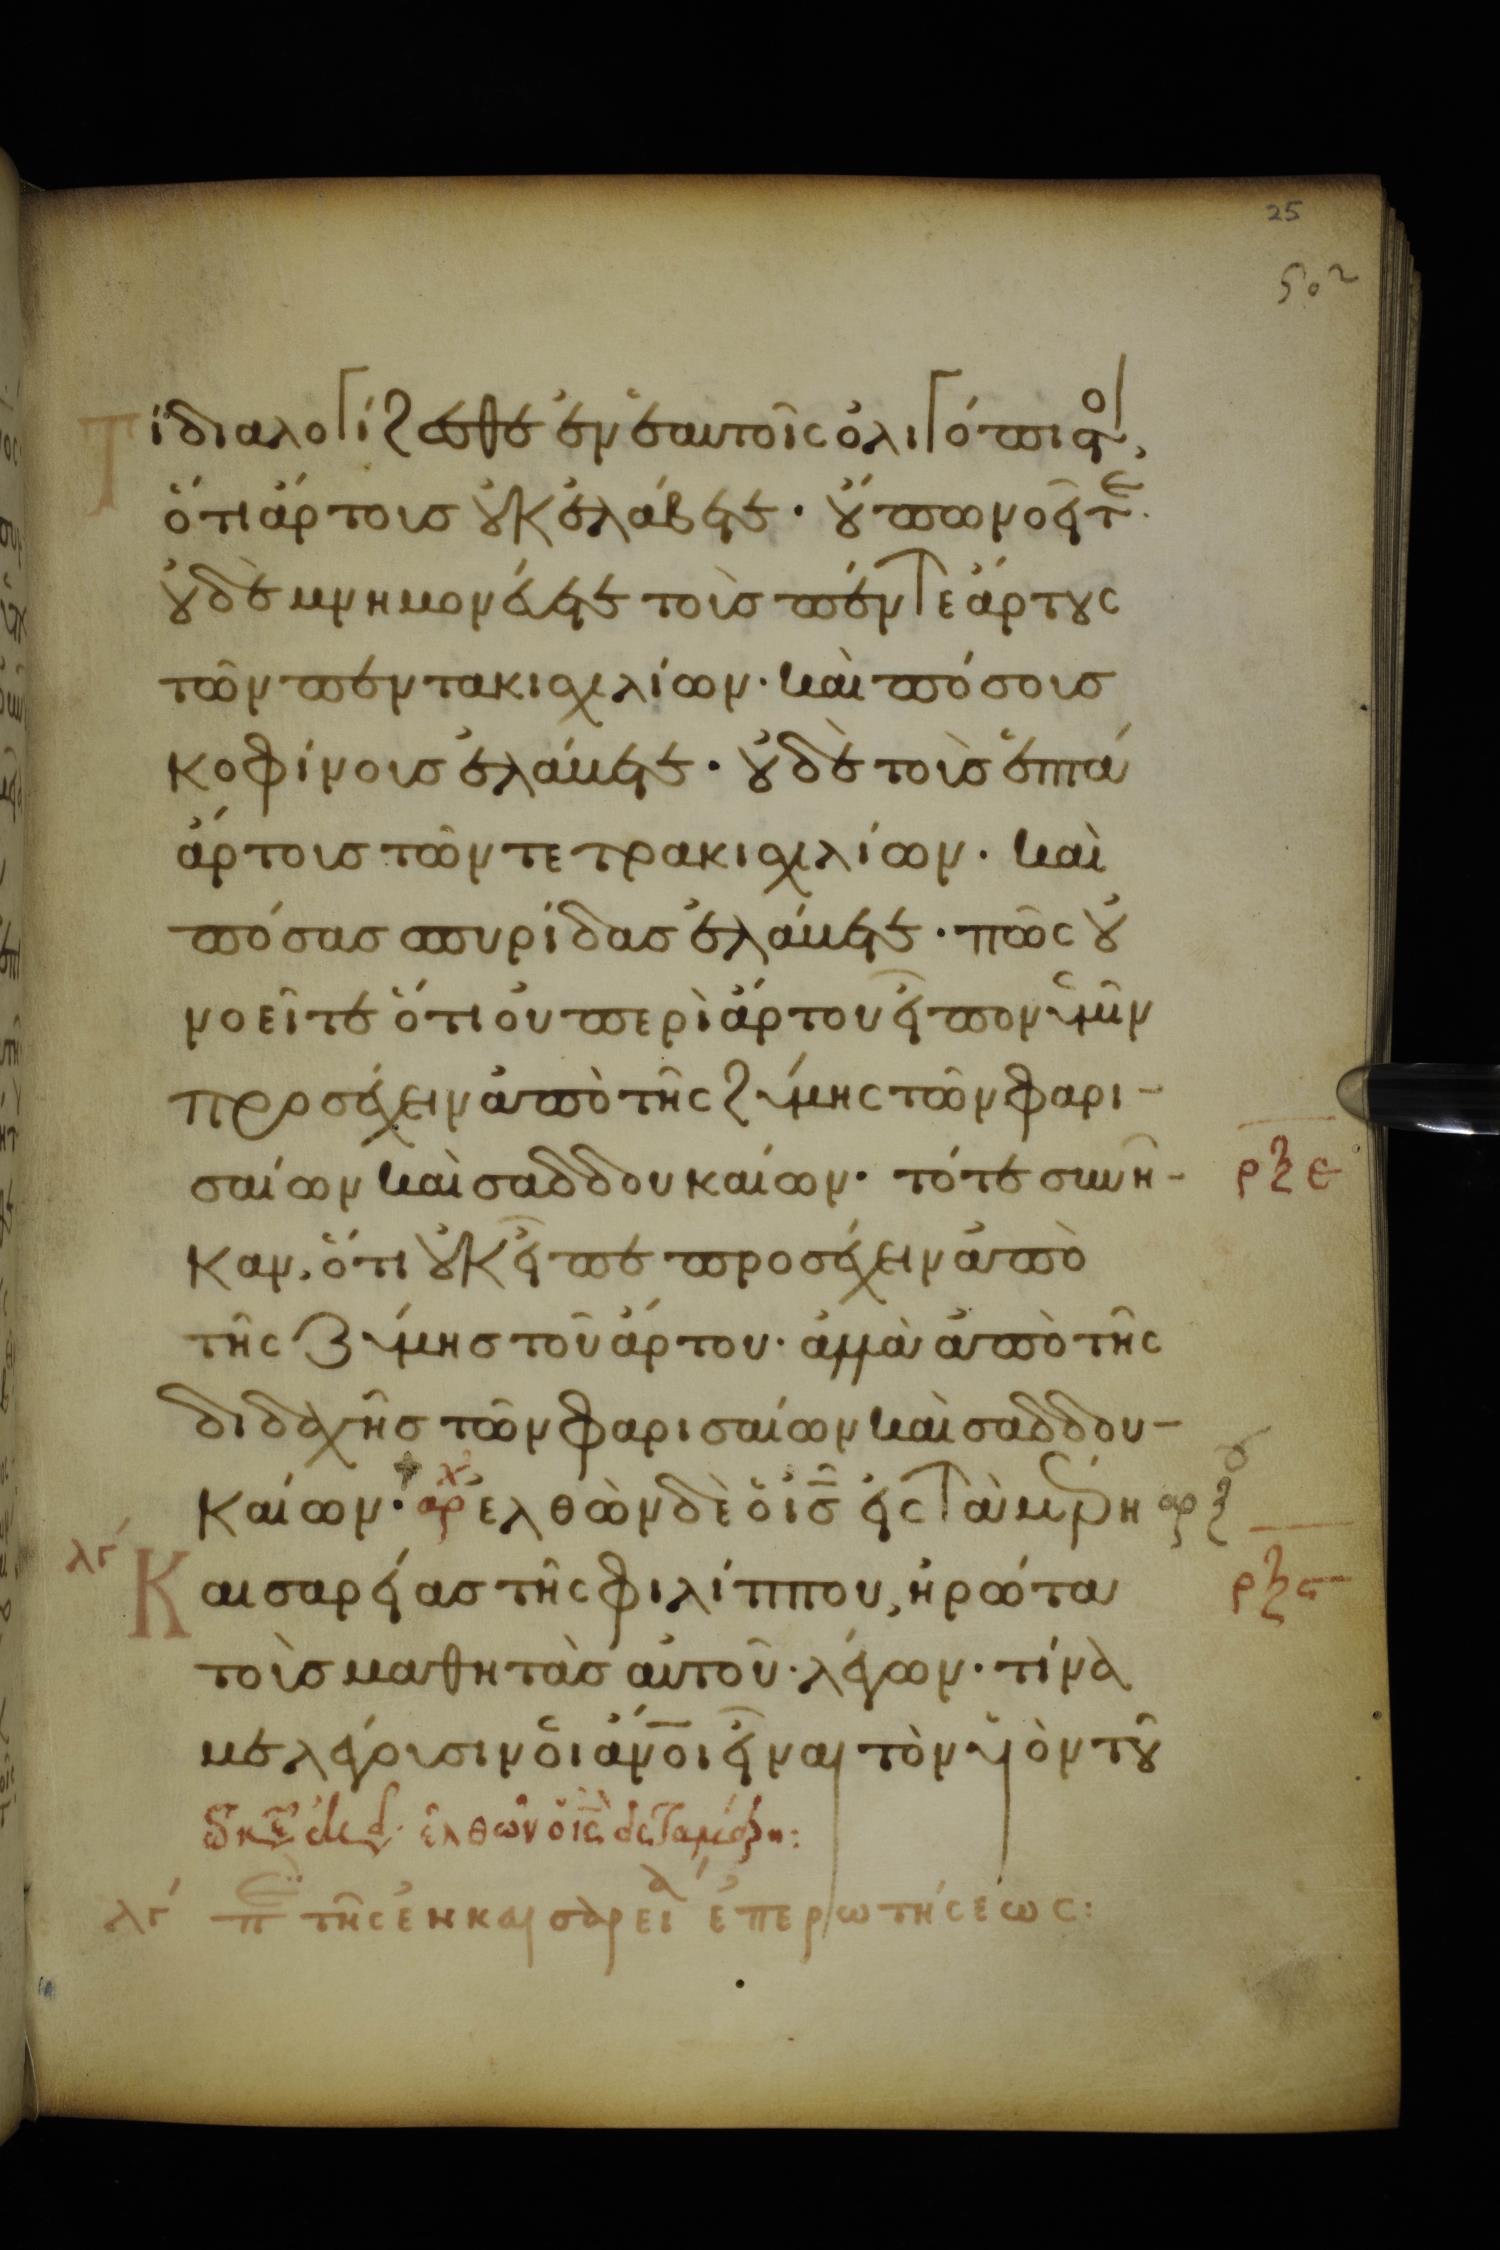 25
502
Τί διαλογίζεσθε ἐν ἑαυτοῖς ὀλιγόπιστοι,
ὅτι ἄρτους οὐκ ἐλάβετε· οὔπω νοεῖτε·
οὐδὲ μνημονεύετε τοὺς πέντε ἄρτους
τῶν πεντακισχιλίων· καὶ πόσους
κοφίνους ἐλάβετε· οὐδὲ τοὺς ἑπτὰ
ἄρτους τῶν τετρακισχιλίων· καὶ
πόσας σπυρίδας ἐλάβετε· πῶς οὐ
νοεῖτε ὅτι οὐ περὶ ἄρτου εἶπον ὑμῖν
προσέχειν ἀπὸ τῆς ζύμης τῶν φαρι-
σαίων καὶ σαδδουκαίων· τότε συνῆ- ρξε
καν, ὅτι οὐκ εἶπε προσέχειν ἀπὸ
τῆς ζύμης τοῦ ἄρτου· ἀλλὰ ἀπὸ τῆς
διδαχῆς τῶν φαρισαίων καὶ σαδδου-
καίων· ἀρχ ἐλθὼν δὲ ὁ ις εἰς τὰ μέρη
λγ Καισαρείας τῆς φιλίππου, ἠρώτα ρξς
τοὺς μαθητὰς αὐτοῦ· λέγων· τίνα
με λέγουσιν οἱ ἄνοι εἶναι τὸν υἱὸν τοῦ
ἐλθὼν ὁ ις εἰς τὰ μέρη:
λγ π τῆς ἐν καισαρεία ἐπερωτήσεως: